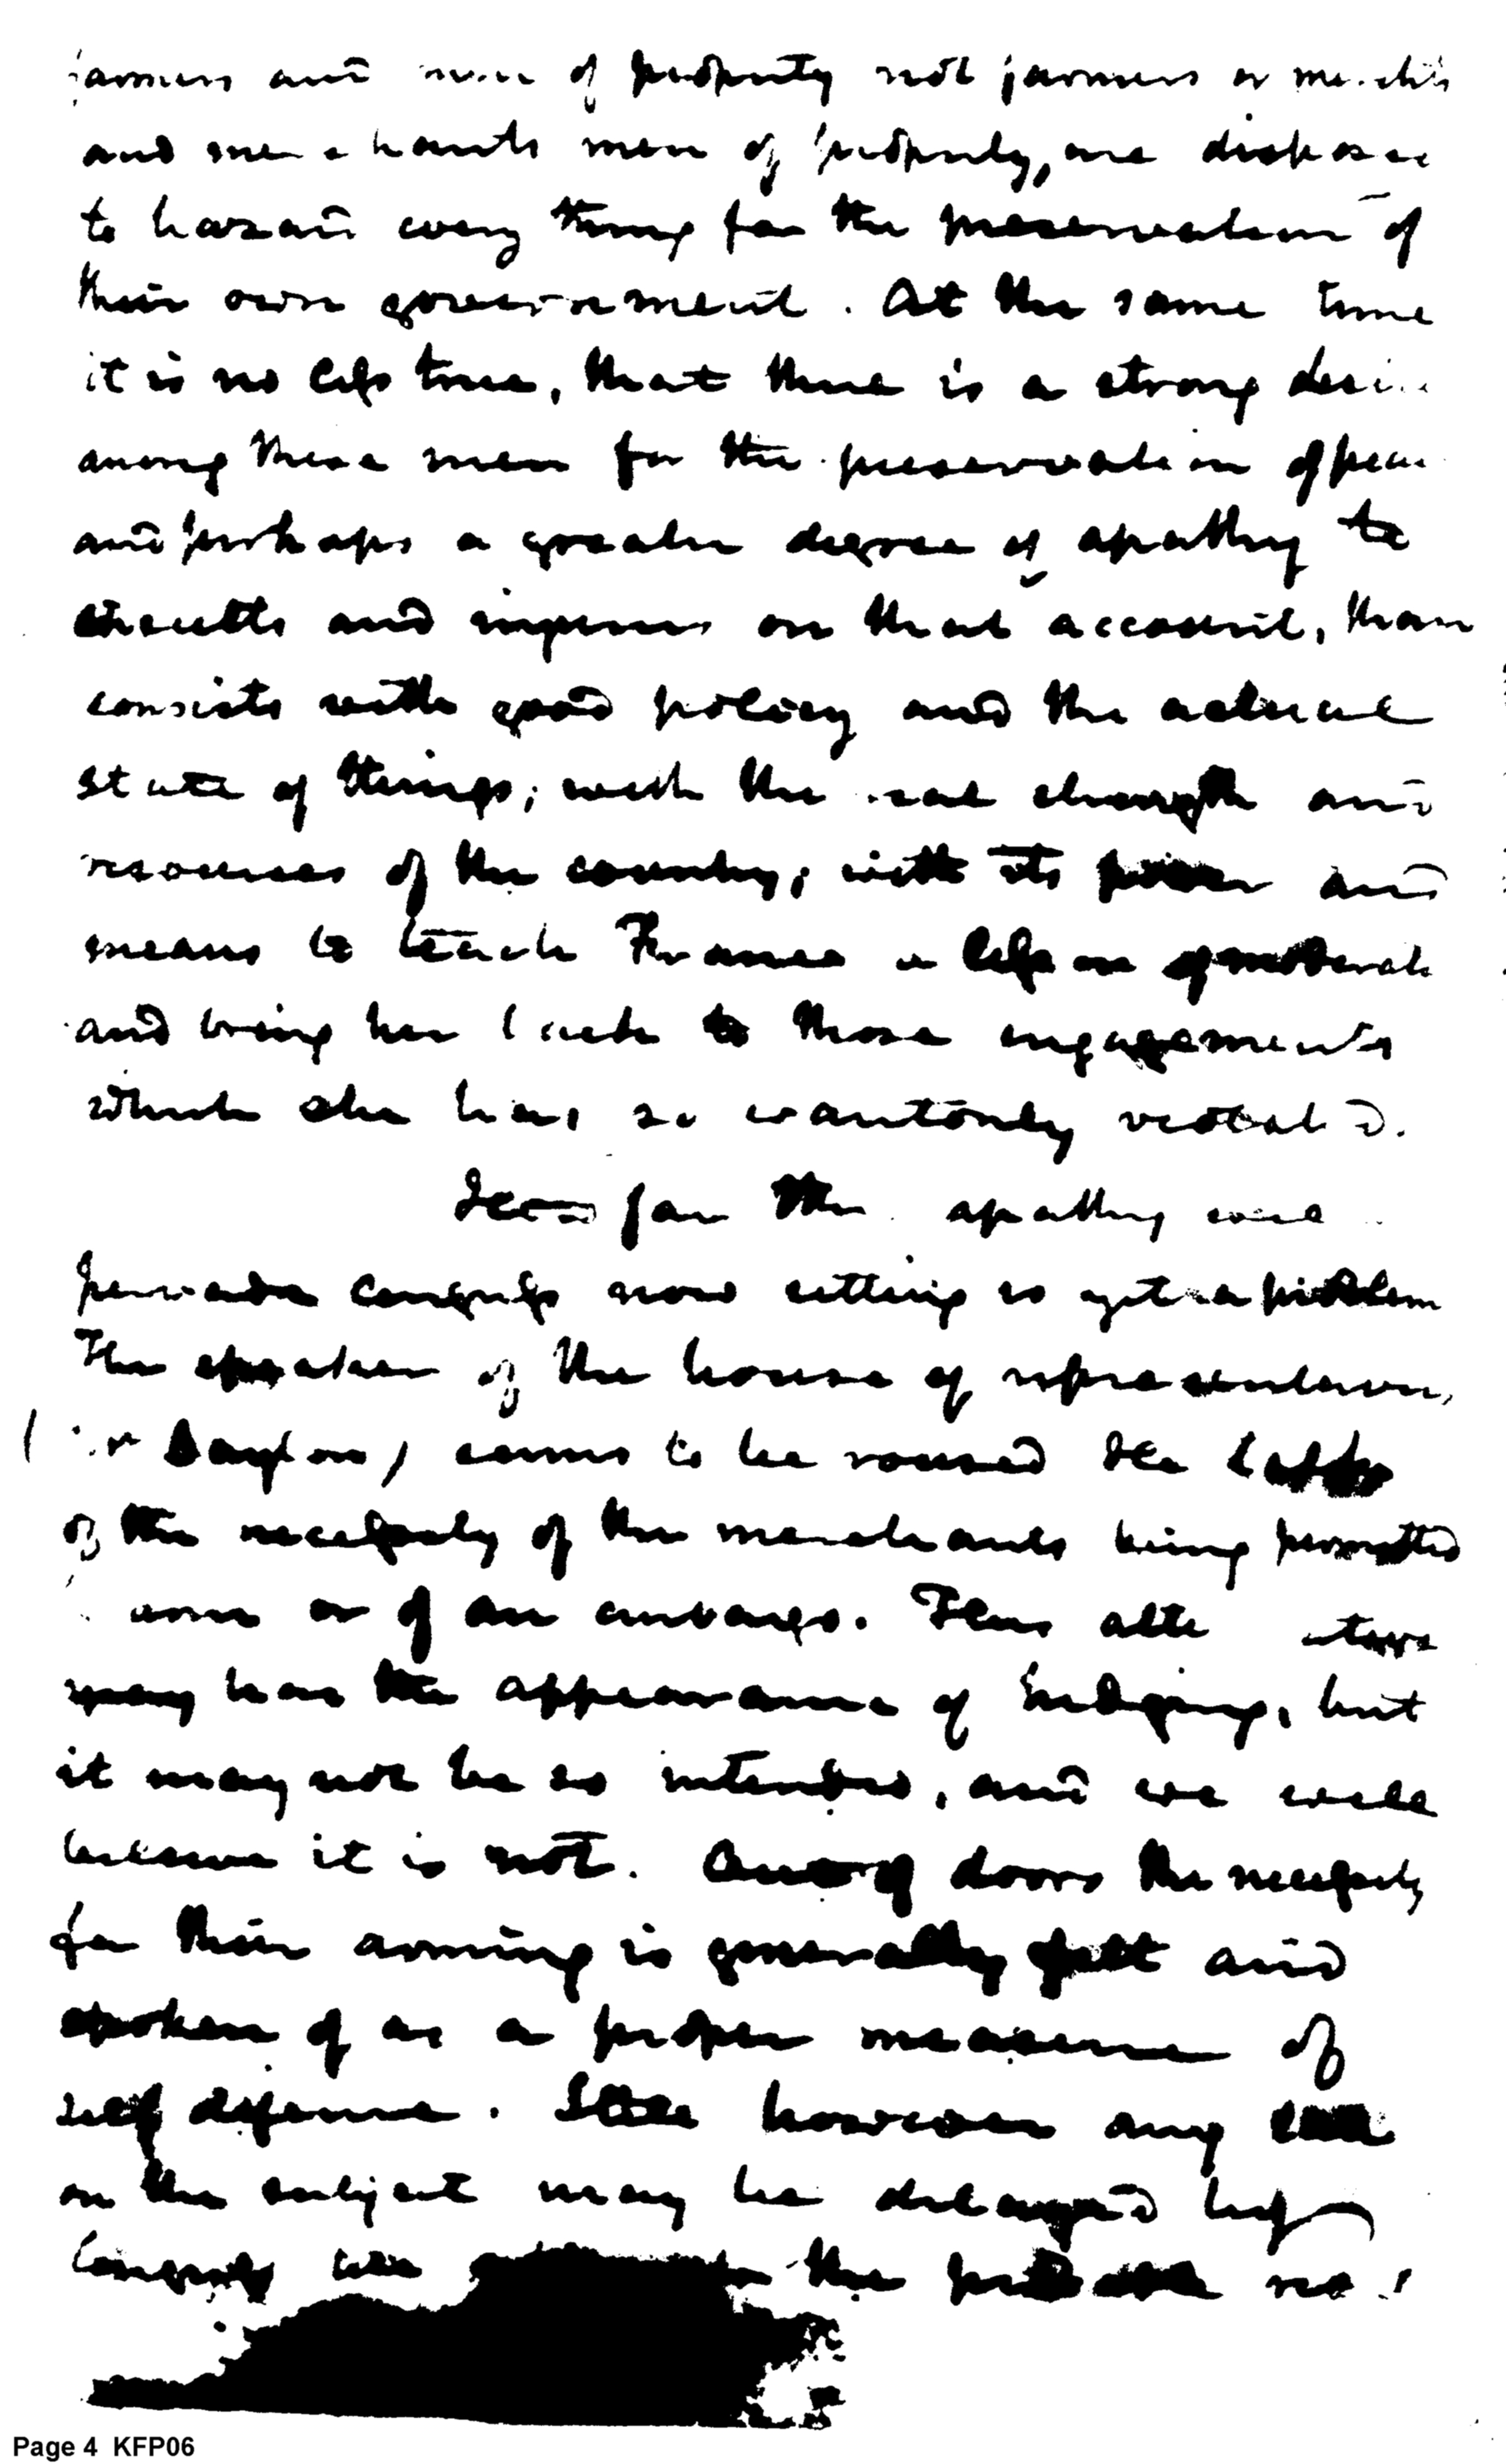 farmers and men of property not farmers or merchts
and merchants men of property, are disposed
to hazard every thing for the preservation of
their own government. At the same time
it is no less true, that there is a strong desire
among these men for the preservation of peace
and perhaps a greater degree of apathy to
insults and injuries on that account, than
consists with good policy and the actual
state of things; with the real strength and
resources of the country; with its power and
means to teach France a lesson of moderate
and bring her back to those engagements
which she has so wantonly violated.
How far the apathy will
pervade Congress now sitting is yet a problem
The speaker of the house of representatives,
(Mr Dayton) seems to be roused He talks
of the necessity of the merchants being permitted
arm or of an embargo. This alte
may have the appearance of hedging, but
it may not be so intended, and we will
believe it is not. Out of doors the necessity
for their arming is generally felt and
spoken of as a proper measure of
self defence. Still however any
on the subject may be delayed by
Congress the
Page 4 KFP06